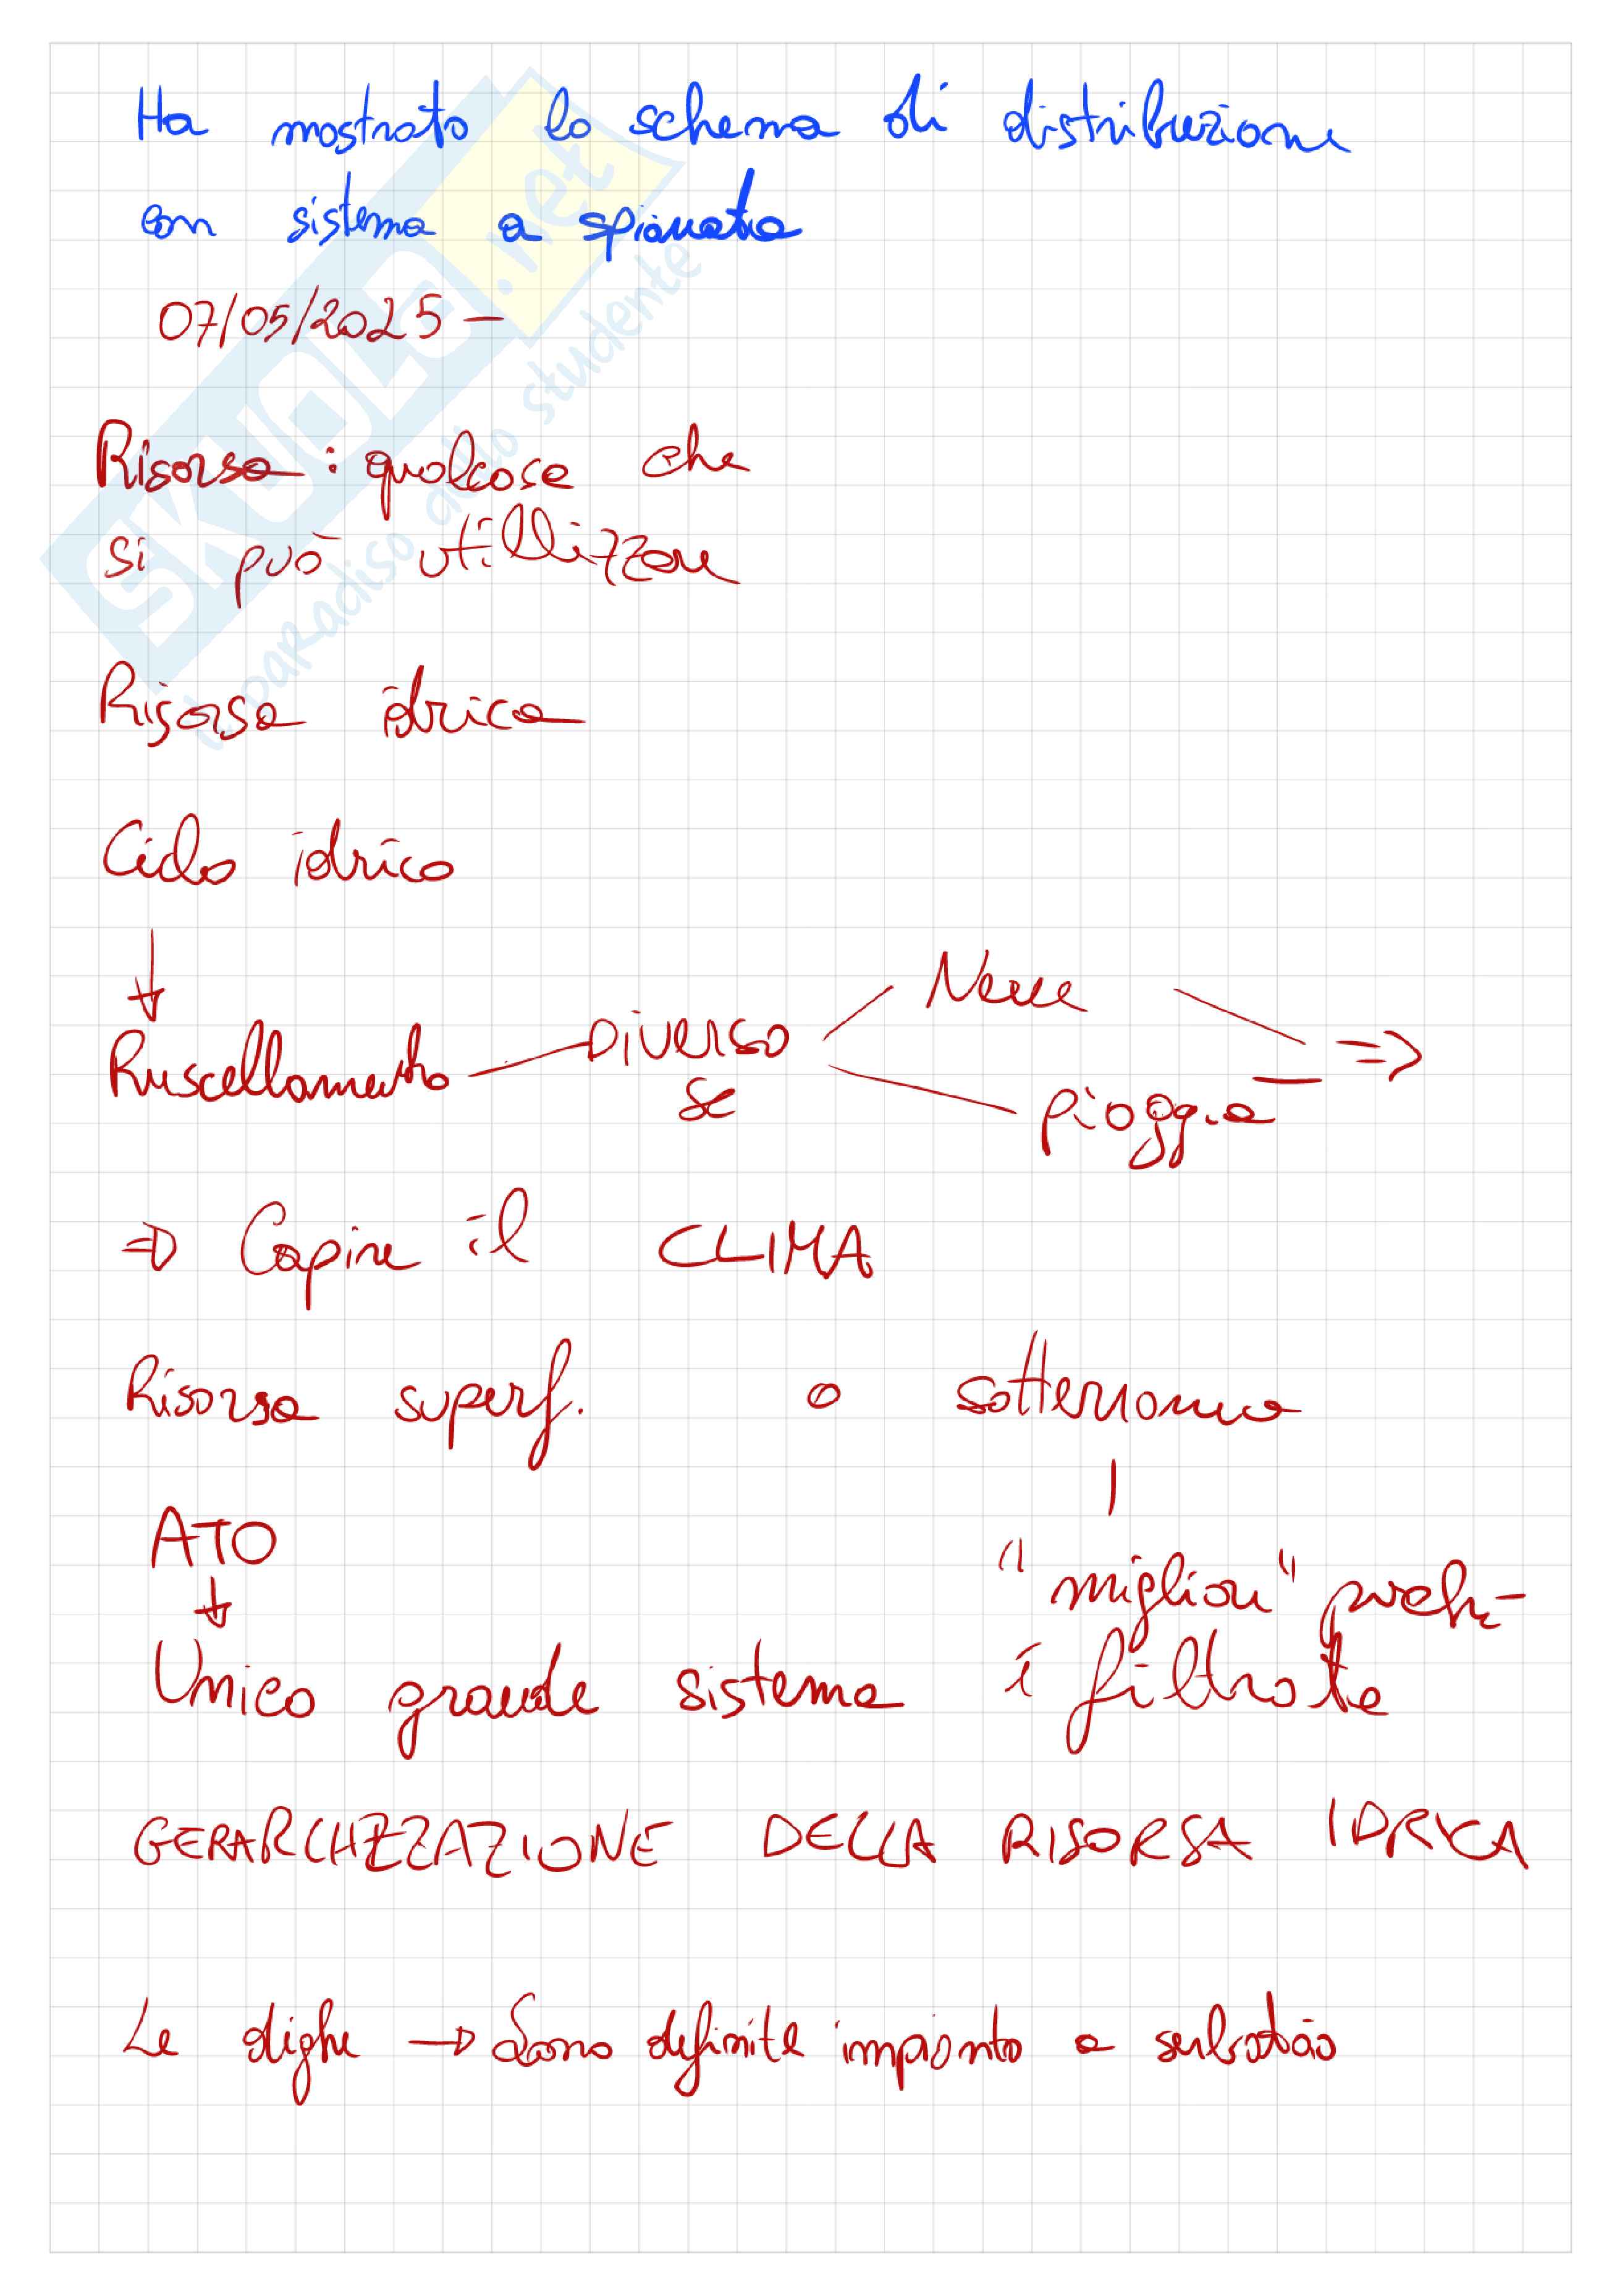 Ha mostrato lo schema di distribuzione
con sistema a spianata
07/05/2025 -
Risorsa : qualcosa che
si può utillizzare
Risorsa idrica
Ciclo idrico
↓
Ruscellamento — DIVERSO se — Neve
pioggia — =>
=> Capire il CLIMA
Risorsa superf. o sotterranea
ATO
↓
"migliori" poichè
Unico grande sistema
filtrate
GERARCHIZZAZIONE DELLA RISORSA IDRICA
Le dighe → Sono definite impianto a serbatoio
SKUOLA.net
il paradiso dello studente